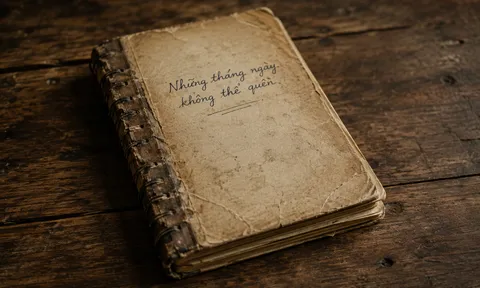 Những tháng ngày
không thể quên